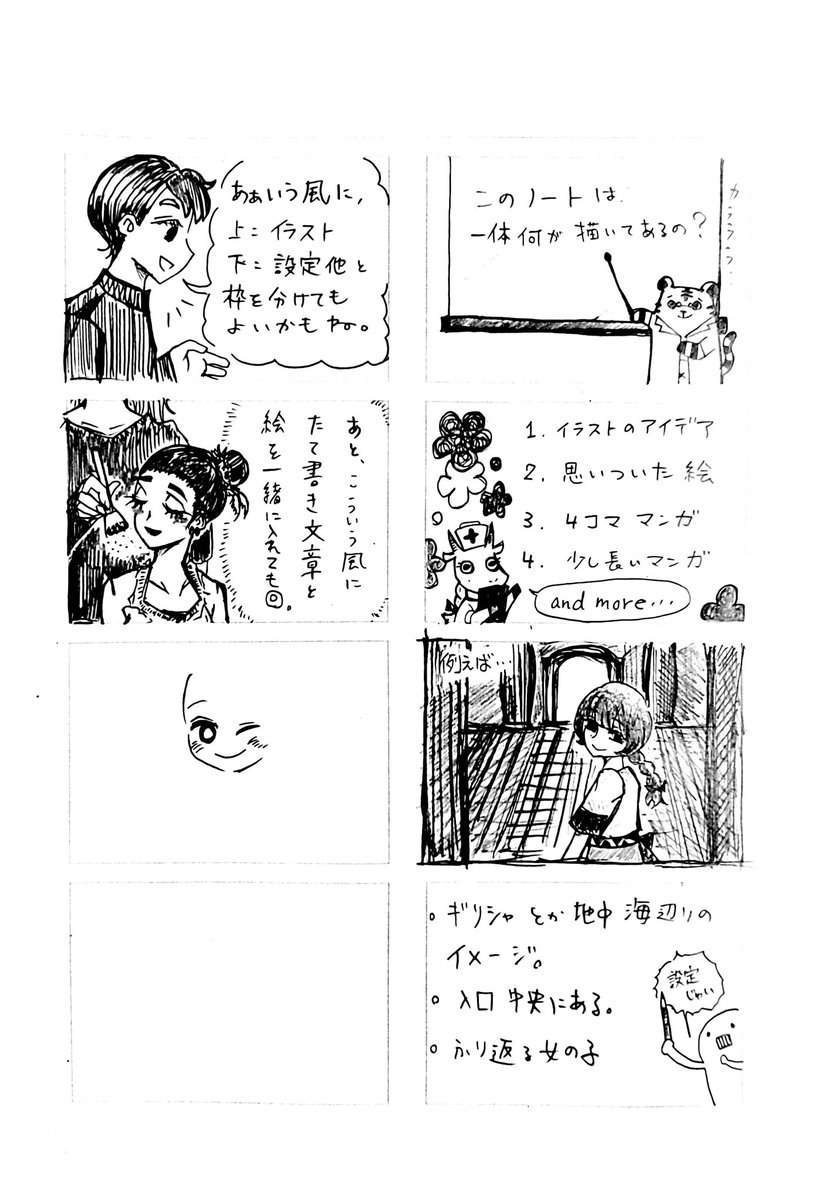 このノートは
一体何が描いてあるの?
1. イラストのアイデア
2. 思いついた絵
3. 4コママンガ
4. 少し長いマンガ
and more...
例えば...
ギリシャとか地中海辺りの
イメージ。
入口中央にある。
ふり返る女の子
設定
じゃい
あぁいう風に、
上=イラスト
下=設定他と
枠を分けても
よいかもね。
あと、こういう風に
たて書き文章と
絵を一緒に入れても◎。